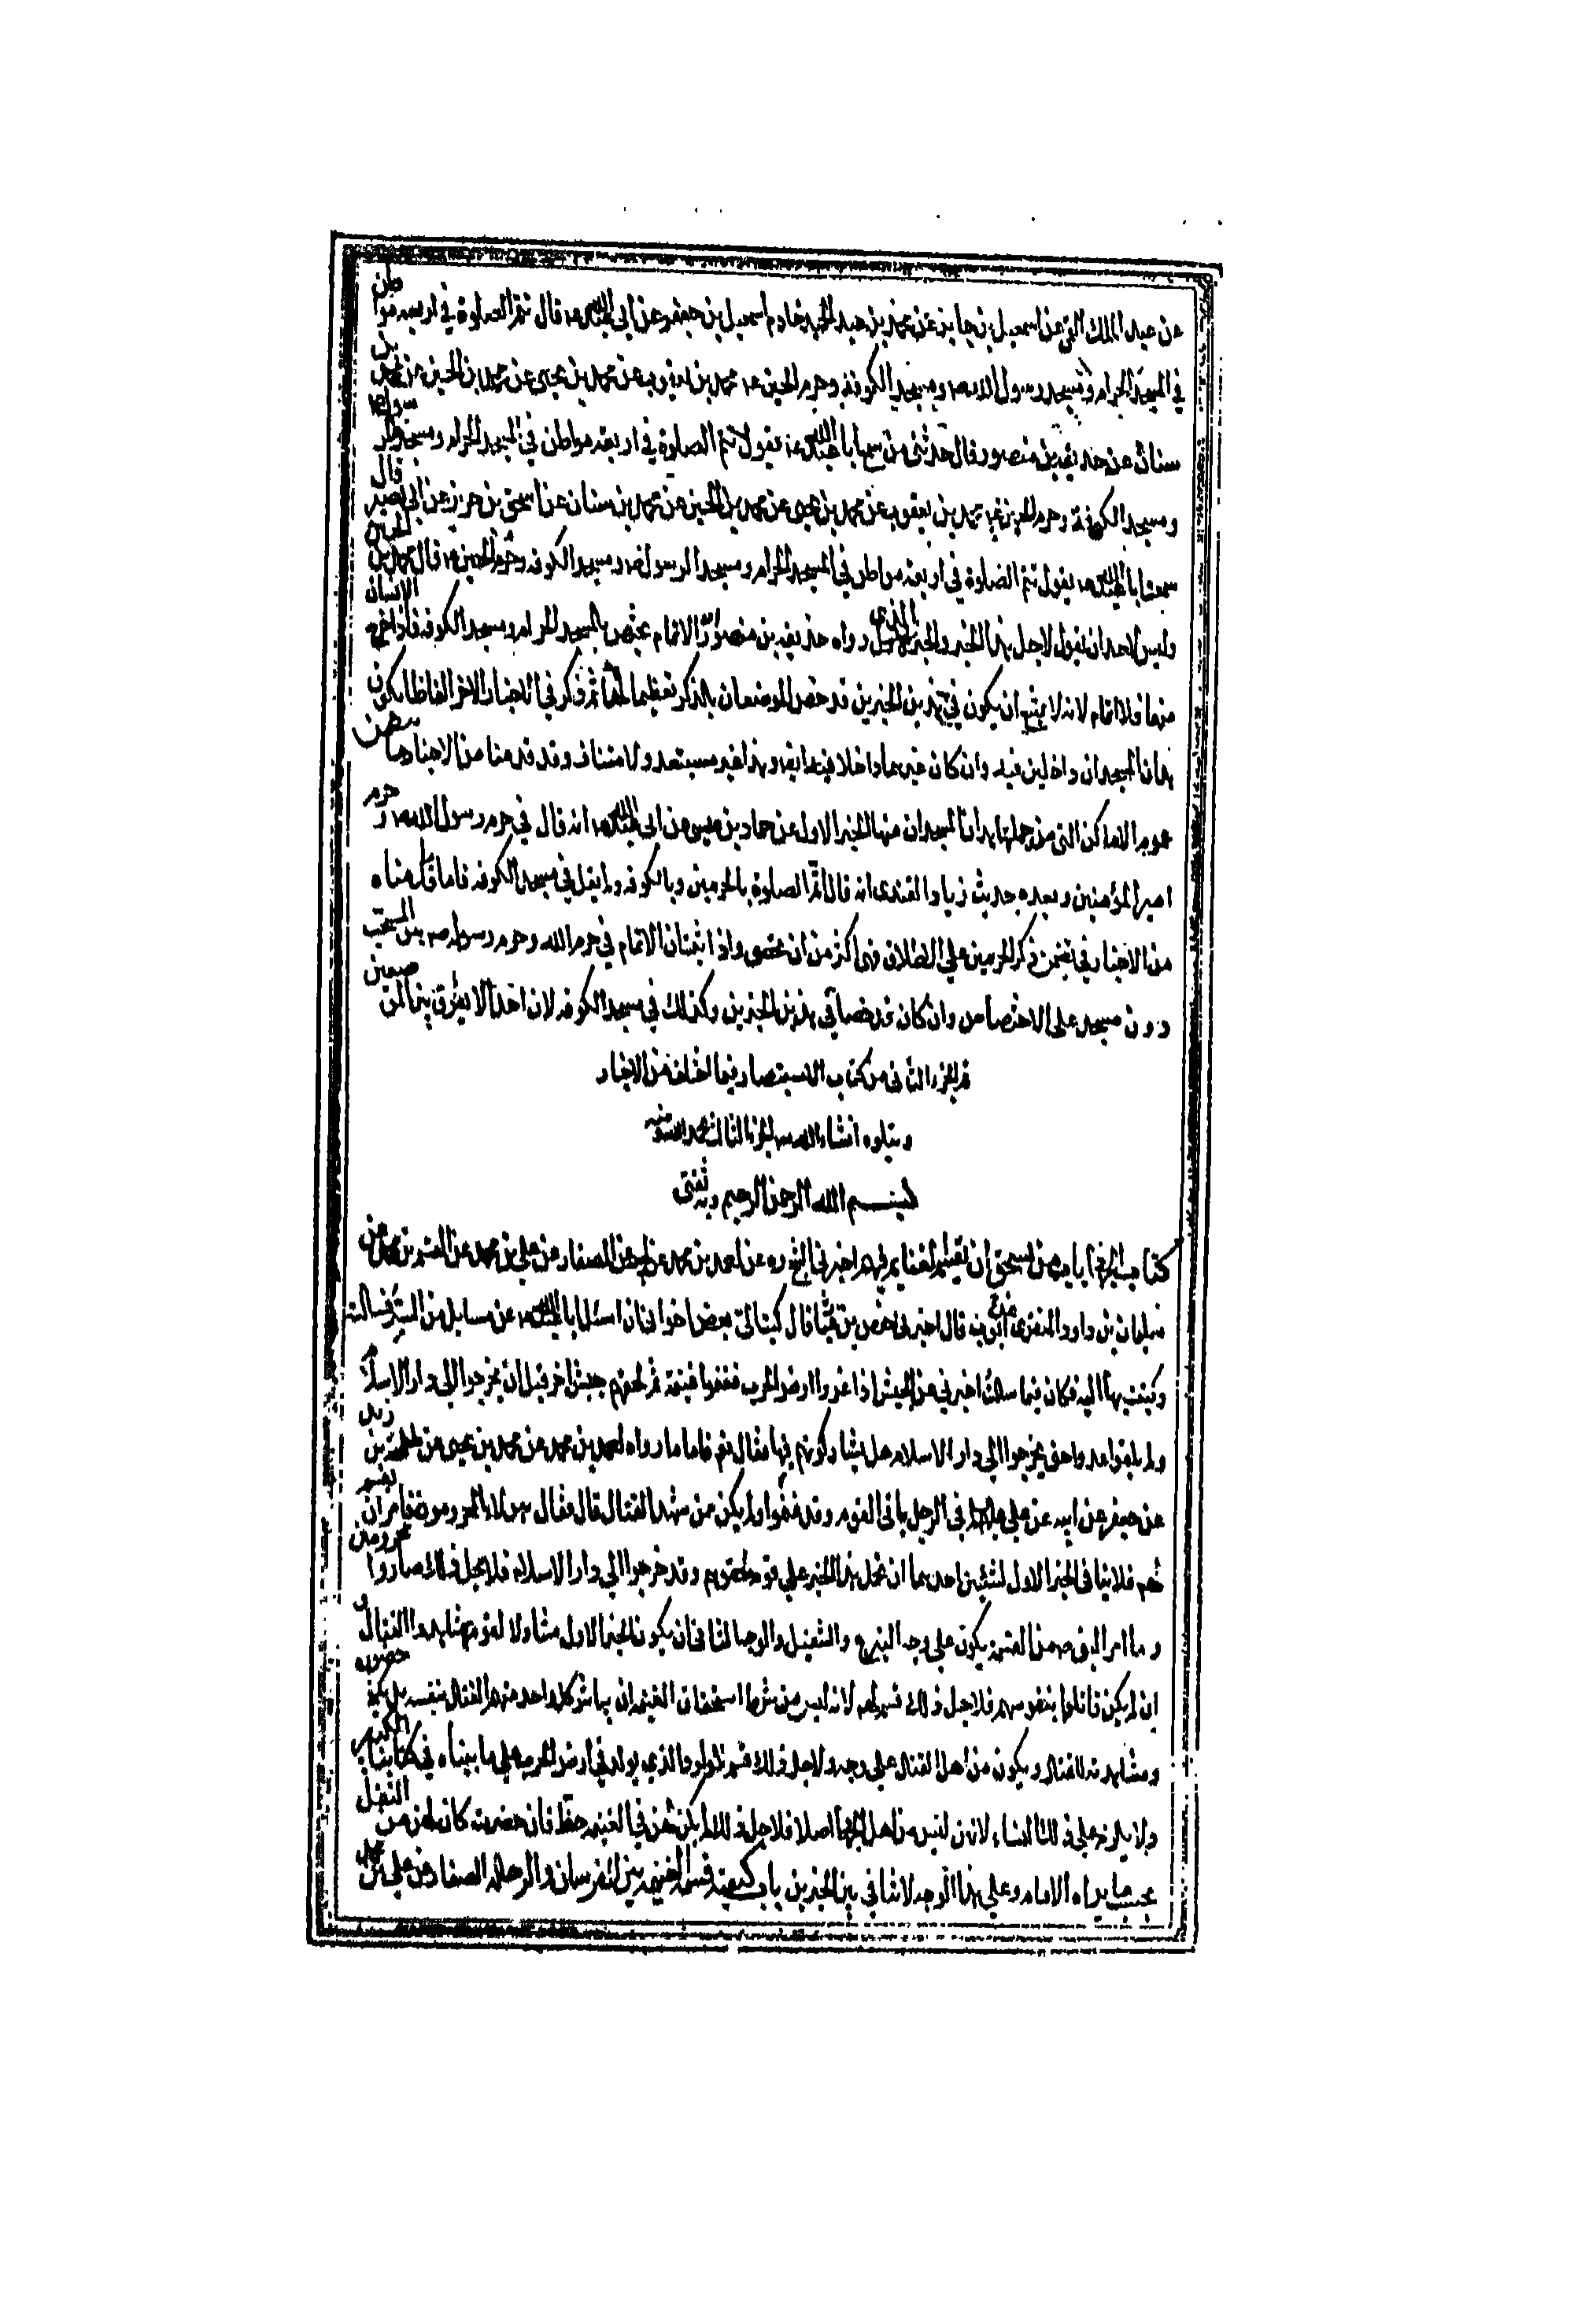 عن عبد الملك القمي عن اسمعيل بن جابر عن محمد بن عبد الحميد خادم اسمعيل بن جعفر عن ابي عبد الله ع قال تتم الصلوة في اربعة مواطن
في المسجد الحرام ومسجد رسول الله ص ومسجد الكوفة وحرم الحسين ع محمد بن يعقوب عن محمد بن يحيى عن محمد بن الحسين عن محمد بن
سنان عن حذيفة بن منصور قال حدثني من سمع ابا عبد الله ع يقول تتم الصلوة في اربعة مواطن في المسجد الحرام ومسجد الرسول ص
ومسجد الكوفة وحرم الحسين ع محمد بن يعقوب عن محمد بن يحيى عن محمد بن الحسين عن محمد بن سنان عن اسحق بن حريز عن ابي بصير قال
سمعت ابا عبد الله ع يقول تتم الصلوة في اربعة مواطن في المسجد الحرام ومسجد الرسول ص ومسجد الكوفه وحرم الحسين ع قال محمد بن الحسن
وليس لاحد ان يقول لاجل هذا الخبر والخبر الذي رواه حذيفه بن منصور ان الاتمام يختص بالمسجد الحرام ومسجد الكوفه فاذا خرج الانسان
منهما فلا اتمام لانه لا يمتنع ان يكون في هذين الخبرين قد خص الموضعان بالذكر تعظيما لهما ثم ذكر في الاخبار الاخر الفاظا يكون
هذان المسجدان داخلين فيه وان كان غيرهما داخلا فيه ايضا وهذا غير مستبعد ولا متناف وقد قدمنا من الاخبار ما يتضمن
عموم الاماكن التي من جملتها هذان المسجدان منها الخبر الاول عن حماد بن عيسى عن ابي عبد الله ع انه قال في حرم رسول الله ص وحرم
امير المؤمنين وبعده حديث زياد القندي انه قال اتم الصلوة بالحرمين وبالكوفه ولم يقل في مسجد الكوفه فاما ما قدمناه
من الاخبار في تضمن ذكر الحرمين على الاطلاق فهي اكثر من ان تحصى واذا ثبت ان الاتمام في حرم الله وحرم رسوله ص هو المستحب
دون مسجد على الاختصاص وان كان قد خصا في هذين الخبرين وكذلك في مسجد الكوفه لان احدا لا يفرق بين الموضعين
تم الجزء الثاني من كتاب الاستبصار فيما اختلف من الاخبار
ويتلوه انشاء الله الجزء الثالث بحمد الله ومنه
بسم الله الرحمن الرحيم وبه ثقتي
كتاب الجهاد باب من يستحق ان يقسم الغنايم فيهم اخبرني الشيخ ره عن احمد بن محمد عن ابيه عن الصفار عن علي بن محمد عن القسم بن محمد عن
سليمان بن داود المنقري قال اخبرني حفص بن غياث قال كتب الي بعض اخواني ان اسئل ابا عبد الله ع عن مسايل من السير فسالته
وكتبت بها اليه فكان فيما سالت اخبرني عن الجيش اذا غزوا ارض الحرب فغنموا غنيمة ثم لحقهم جيش اخر قبل ان يخرجوا الى دار الاسلام
ولم يلقوا عدوا حتى يخرجوا الى دار الاسلام هل يشاركونهم فيها فقال نعم فاما ما رواه احمد بن محمد عن محمد بن يحيى عن طلحة بن زيد
عن جعفر عن ابيه عن علي عليه السلام في الرجل ياتي القوم وقد غنموا ولم يكن ممن شهد القتال قال فقال هولاء المحرومون فامر ان يقسم
لهم فلا ينافي الخبر الاول لشيئين احدهما ان نحمل هذا الخبر على قوم لحقوهم وقد خرجوا الى دار الاسلام فلاجل ذلك صاروا محرومين
وما امر النبي ص من القسمة يكون على وجه التبرع والتفضل والوجه الثاني ان يكون الخبر الاول متناولا لقوم شاهدوا القتال و
ان لم يكن قاتلوا بنفوسهم فلاجل ذلك قسم لهم لانه ليس من شرط استحقاق الغنيمة ان يباشر كل واحد منهم القتال بنفسه بل يكفي حضوره
ومشاهدته للقتال ويكون من اهل القتال على وجه ولاجل ذلك قسم للمولود الذي يولد في ارض الحرب على ما بيناه في كتابنا الكبير
ولا يلزم على ذلك النساء لانهن ليس من اهل الجهاد اصلا فلاجل ذلك لم يكن لهن في الغنيمه حظ فان حضرن كان لهن من التفضل
بحسب ما يراه الامام وعلى هذا الوجه لا تنافي بين الخبرين باب كيفية قسمة الغنيمه بين الفرسان والرجالة الصفار عن علي بن محمد